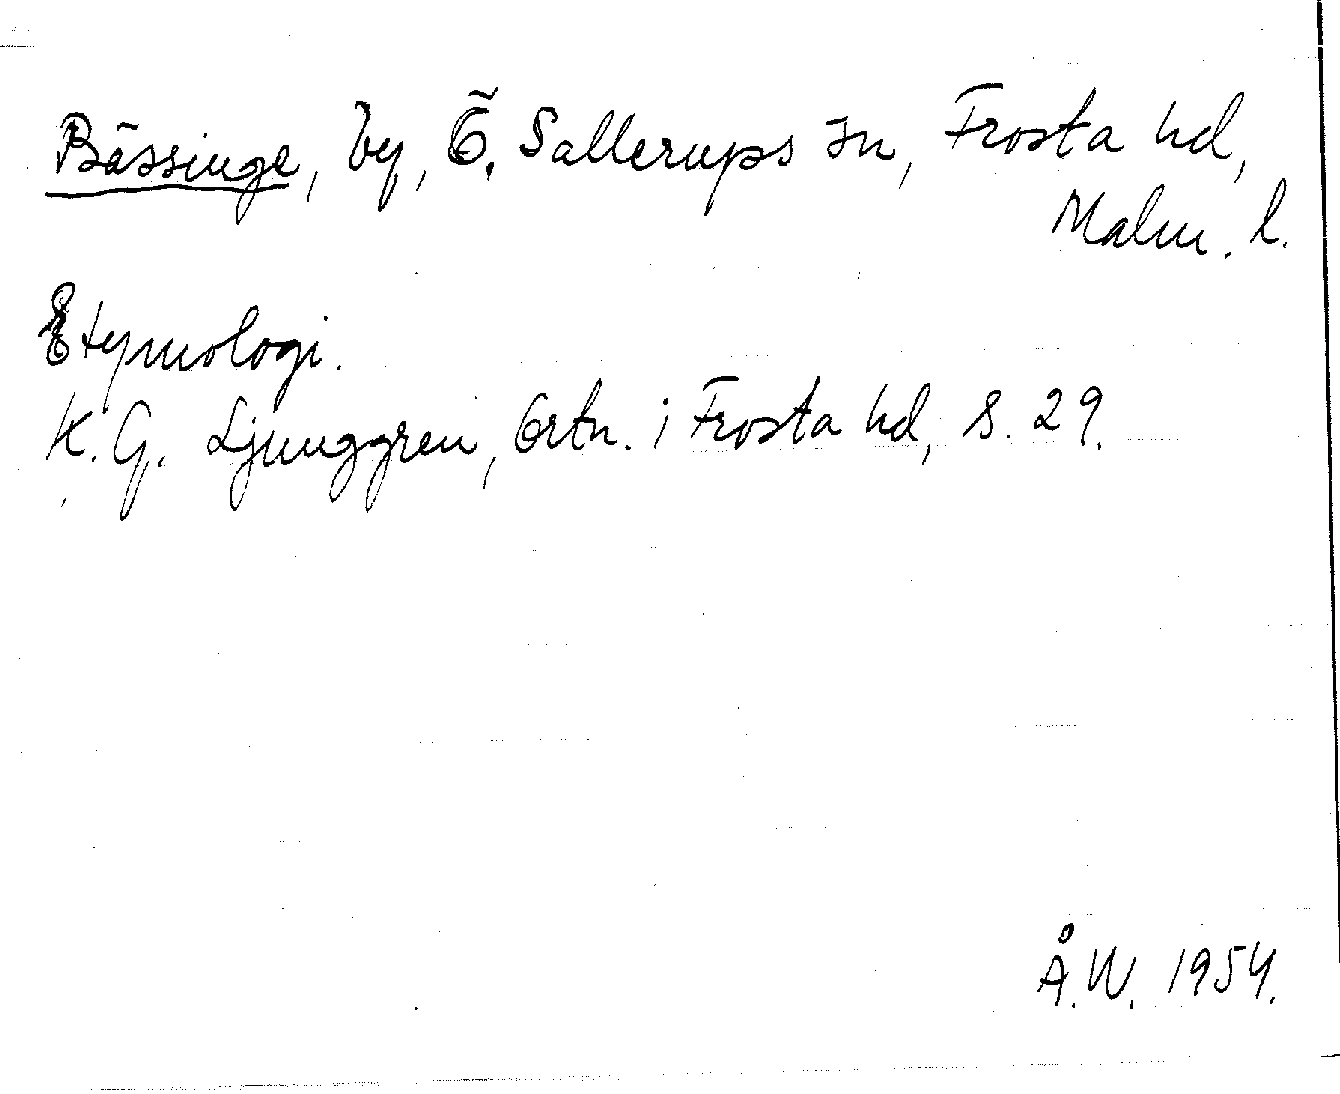 Bässinge, by, Ö. Sallerups sn, Frosta hd,
Malm. l.
Etymologi.
K. G. Ljunggren, Ortn. i Frosta hd, S. 29.
Å. W. 1954.